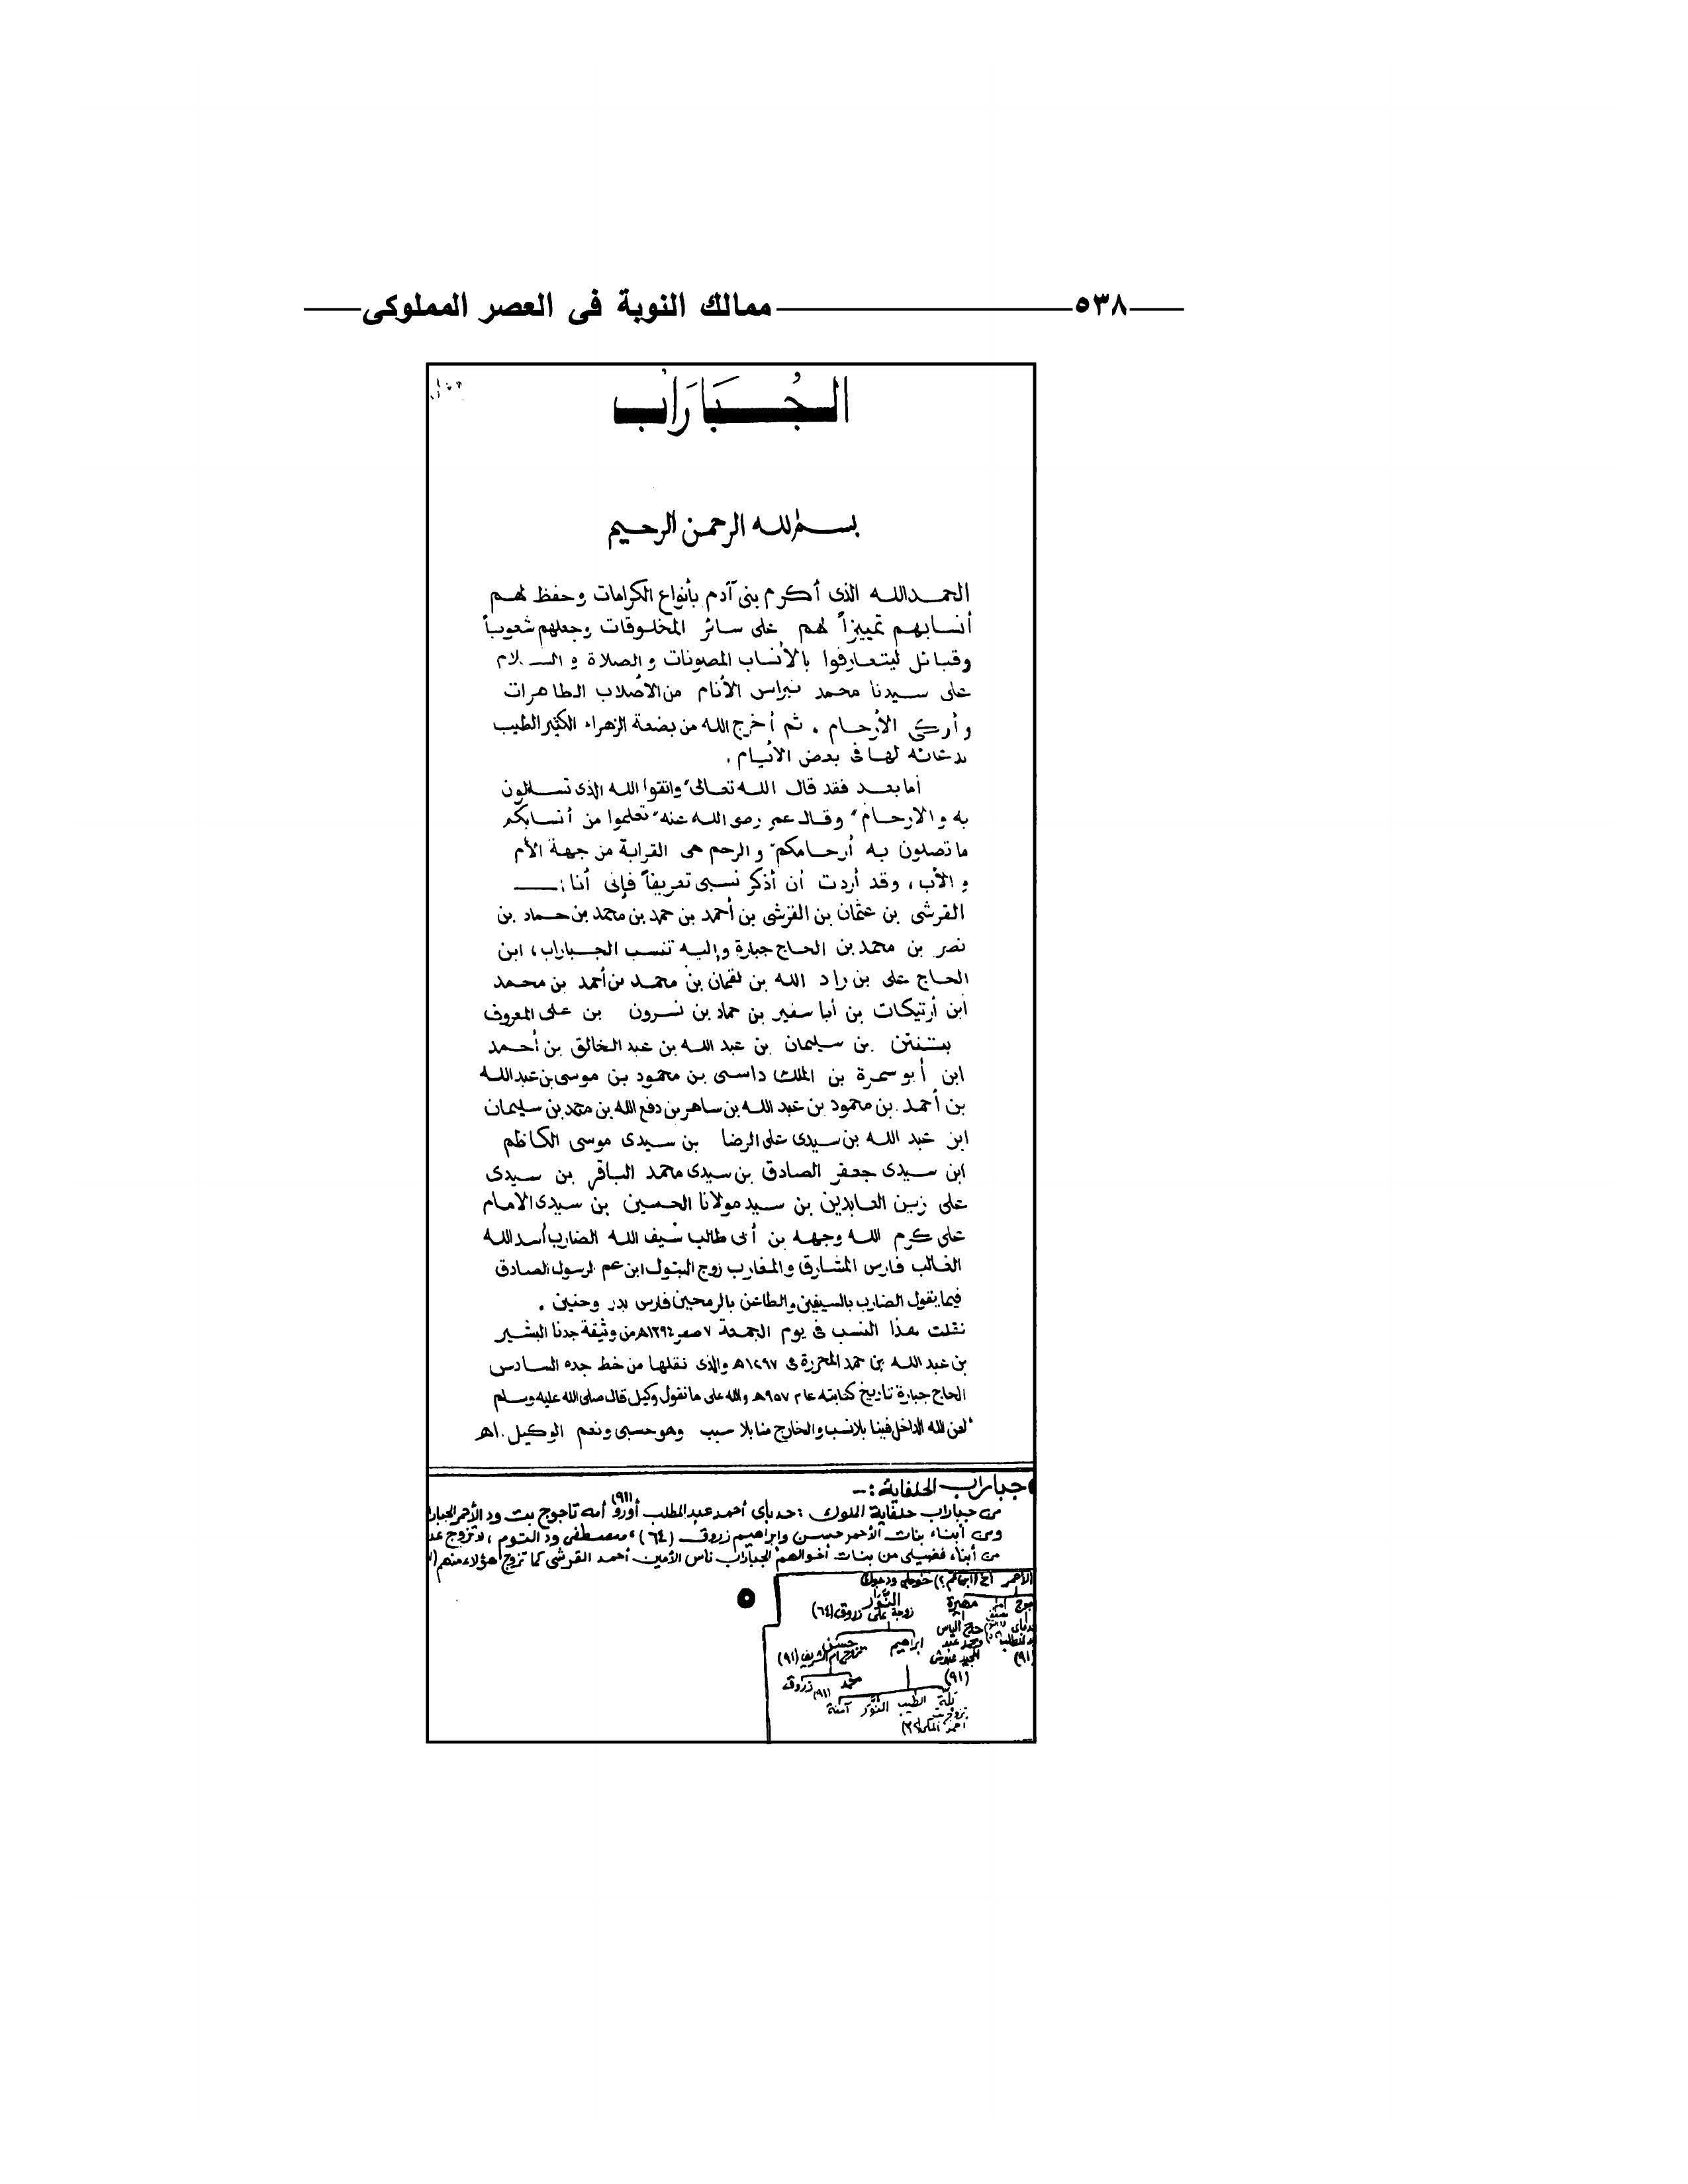 ٥٣٨ ممالك النوبة فى العصر المملوكى
الجُبَارَاب
بسم الله الرحمن الرحيم
الحمدالله الذى أكرم بنى آدم بأنواع الكرامات وحفظ لهم
أنسابهم تمييزاً لهم على سائر المخلوقات وجعلهم شعوباً
وقبائل ليتعارفوا بالأنساب المصونات والصلاة والسلام
على سيدنا محمد نبراس الأنام من الأصلاب الطاهرات
وأزكى الأرحام . ثم أخرج الله من بضعة الزهراء الكثير الطيب
بدعائه لها فى بعض الأيام .
أما بعد فقد قال الله تعالى "واتقوا الله الذى تساءلون
به والارحام" وقال عمر رضى الله عنه "تعلموا من أنسابكم
ما تصلون به أرحامكم" والرحم هى القرابة من جهة الأم
والأب ، وقد أردت أن أذكر نسبى تعريفاً فإنى أنا :ـــ
القرشى بن عثمان بن القرشى بن أحمد بن حمد بن محمد بن حماد بن
نصر بن محمد بن الحاج جبارة وإليه تنسب الجباراب ، ابن
الحاج على بن راد الله بن لقمان بن محمد بن أحمد بن محمد
ابن أرتيكات بن أبا سفير بن حماد بن نسرون بن على المعروف
بن سليمان بن عبد الله بن عبد الخالق بن أحمد
ابن أبو سمرة بن الملك داسى بن محمود بن موسى بن عبدالله
بن أحمد بن محمود بن عبد الله بن ساهر بن دفع الله بن محمد بن سليمان
ابن عبد الله بن سيدى على الرضا بن سيدى موسى الكاظم
ابن سيدى جعفر الصادق بن سيدى محمد الباقر بن سيدى
على زين العابدين بن سيد مولانا الحسين بن سيدى الامام
على كرم الله وجهه بن أبى طالب سيف الله الضارب أسد الله
الغالب فارس المشارق والمغارب زوج البتول ابن عم الرسول الصادق
فيما يقول الضارب بالسيفين والطاعن بالرمحين فارس بدر وحنين .
نقلت هذا النسب فى يوم الجمعة ٧ صفر ١٣٩٤هـ من وثيقة جدنا البشير
بن عبد الله بن حمد المحررة فى ١٢٩٧هـ والذى نقلها من خط جده السادس
الحاج جبارة تاريخ كتابته عام ٩٥٧هـ والله على ما نقول وكيل قال صلى الله عليه وسلم
"لعن الله الداخل فينا بلا نسب والخارج منا بلا سبب وهو حسبى ونعم الوكيل . اهـ
جباراب الحلفاية :ـ
من جباراب حلفاية الملوك : حدباى أحمد عبد المطلب أورو (٩١) أمه تاجوج بت ود الأحمر
ومن أبناء بنات الأحمر حسن وابراهيم زروق (٦٤) ، مصطفى ود التوم ،
من أبناء فضيلى من بنات أخوالهم الجباراب ناس الأمين أحمد القرشى كما تزوج هؤلاء منهم
الأحمر
النَّوَّار
زوجة على زروق (٦٤)
ابراهيم
حسن
(٩١)
محمد
زروق
(٩١)
الطيب
النَّوَّر
آمنة
٥